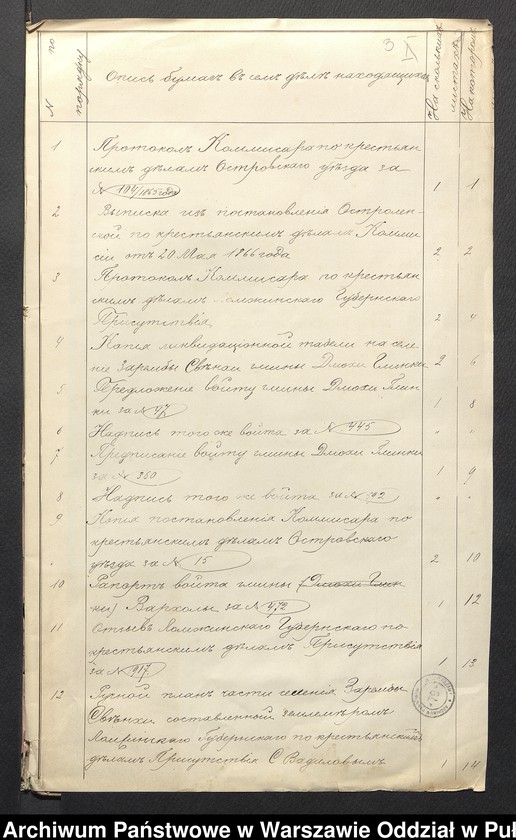 3 IX
№ по порядку
Опись бумагъ въ семъ дѣлѣ находящихся
На сколькихъ листахъ
На которомъ
1 Протоколъ Коммисара по крестьян
скимъ дѣламъ Островскаго уѣзда за
№ 104/1865 года 1 1
2 Выписка изъ постановленія Остролен-
ской по крестьянскимъ дѣламъ Комми
сіи отъ 20 Мая 1866 года 2 2
3 Протоколъ Коммисара по крестьян
скимъ дѣламъ Ломжинскаго Губернскаго
Присутствія 2 4
4 Копія ликвидационной табели на селе
ніе Зарембы Свѣнхи гмины Дмохи Глинки 2 6
5 Предложеніе войту гмины Дмохи Глин
ки за № 47 1 8
6 Надпись того же войта за № 445 " "
7 Предписаніе войту гмины Дмохи Глинки
за № 350 1 9
8 Надпись того же войта за № 92 " "
9 Копія постановленія Коммисара по
крестьянскимъ дѣламъ Островскаго
уѣзда за № 15 2 10
10 Рапортъ войта гмины (Дмохи Глин
ки) Вархолы за № 472 1 12
11 Отзывъ Ломжинскаго Губернскаго по
крестьянскимъ дѣламъ Присутствія
за № 917 1 13
12 Ручной планъ части селенія Зарембы
Свѣнхи составленной землемѣромъ
Ломжинскаго Губернскаго по крестьянскимъ
дѣламъ Присутствія С Вадиловымъ 1 14
Archiwum Państwowe w Warszawie Oddział w Puł